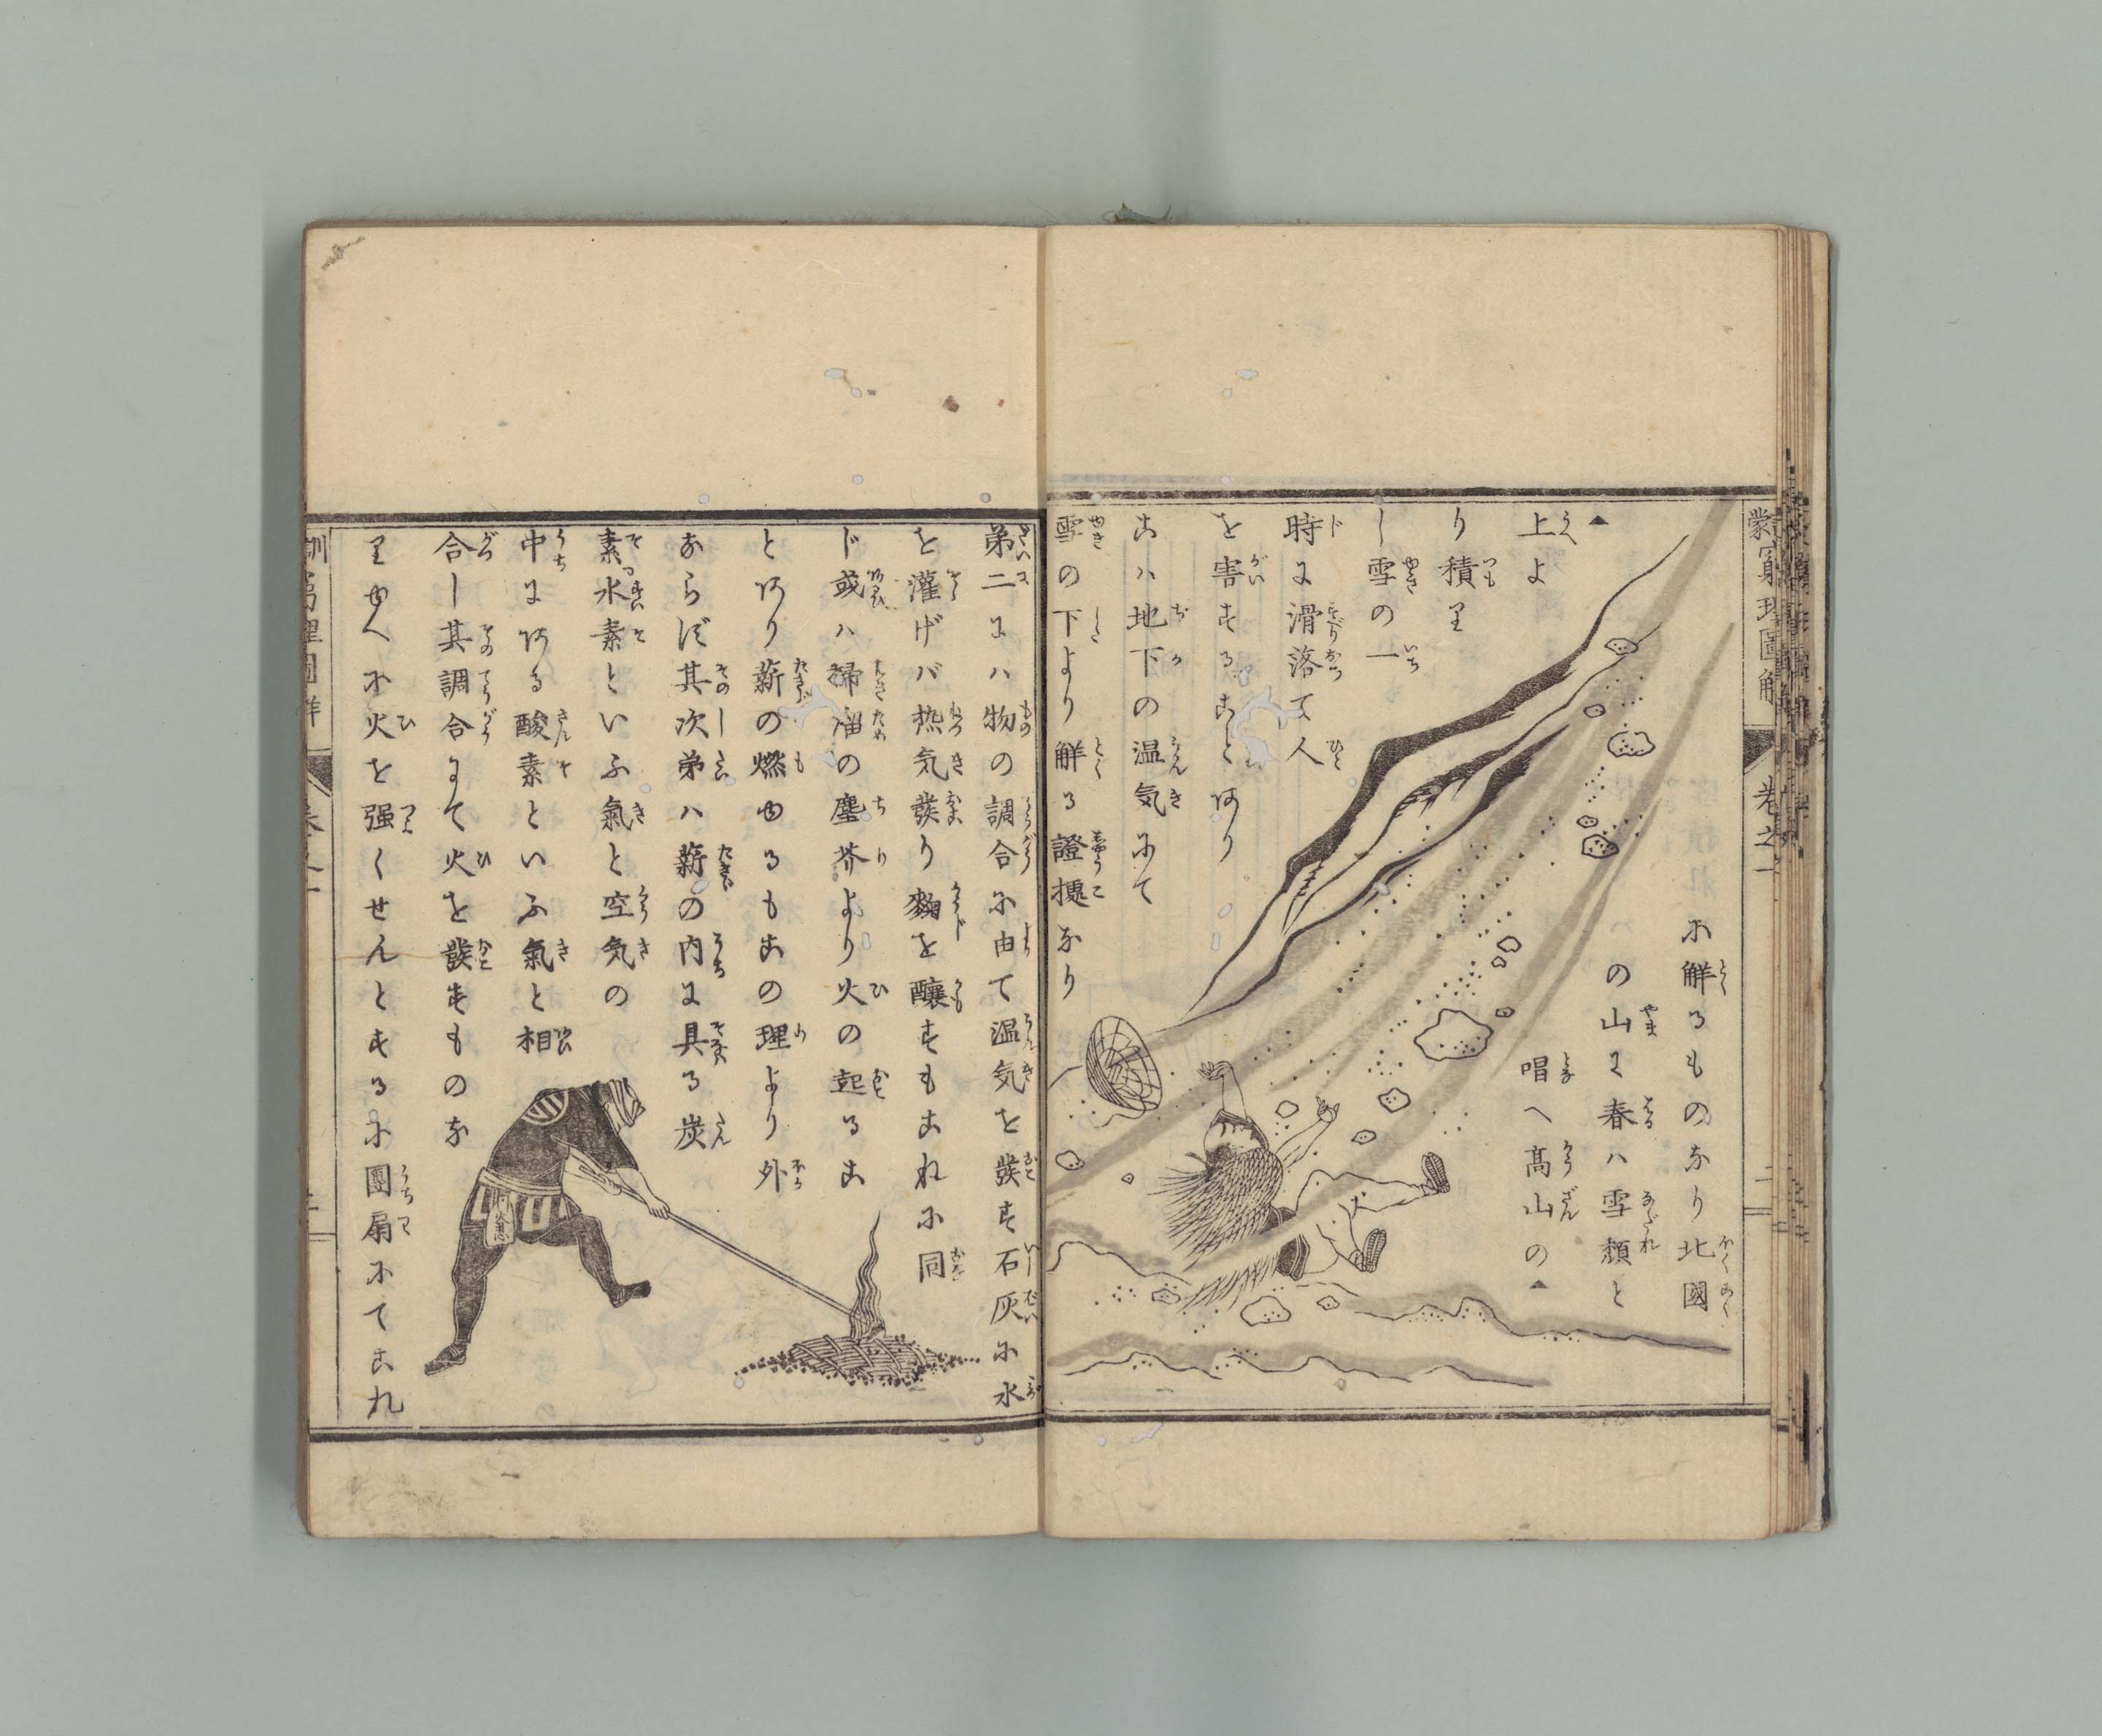 蒙窮理圖解
卷之一
に觧るものなり北國
の山に春ハ雪頽と
唱へ高山の▲
▲上よ
り積り
し雪の一
時に滑落て人
を害することあり
こハ地下の温気にて
雪の下より觧る證據なり
第二にハ物の調合に由て温気を發す石灰に水
を灌げバ热気發り麹を釀すもこれに同
じ或ハ掃溜の塵芥より火の起るこ
とあり薪の燃ゆるもこの理より外
ならず其次第ハ薪の内に具る炭
素水素といふ氣と空気の
中にある酸素といふ氣と相
合し其調合にて火を發すものな
りゆへに火を强くせんとするに團扇にてこれ